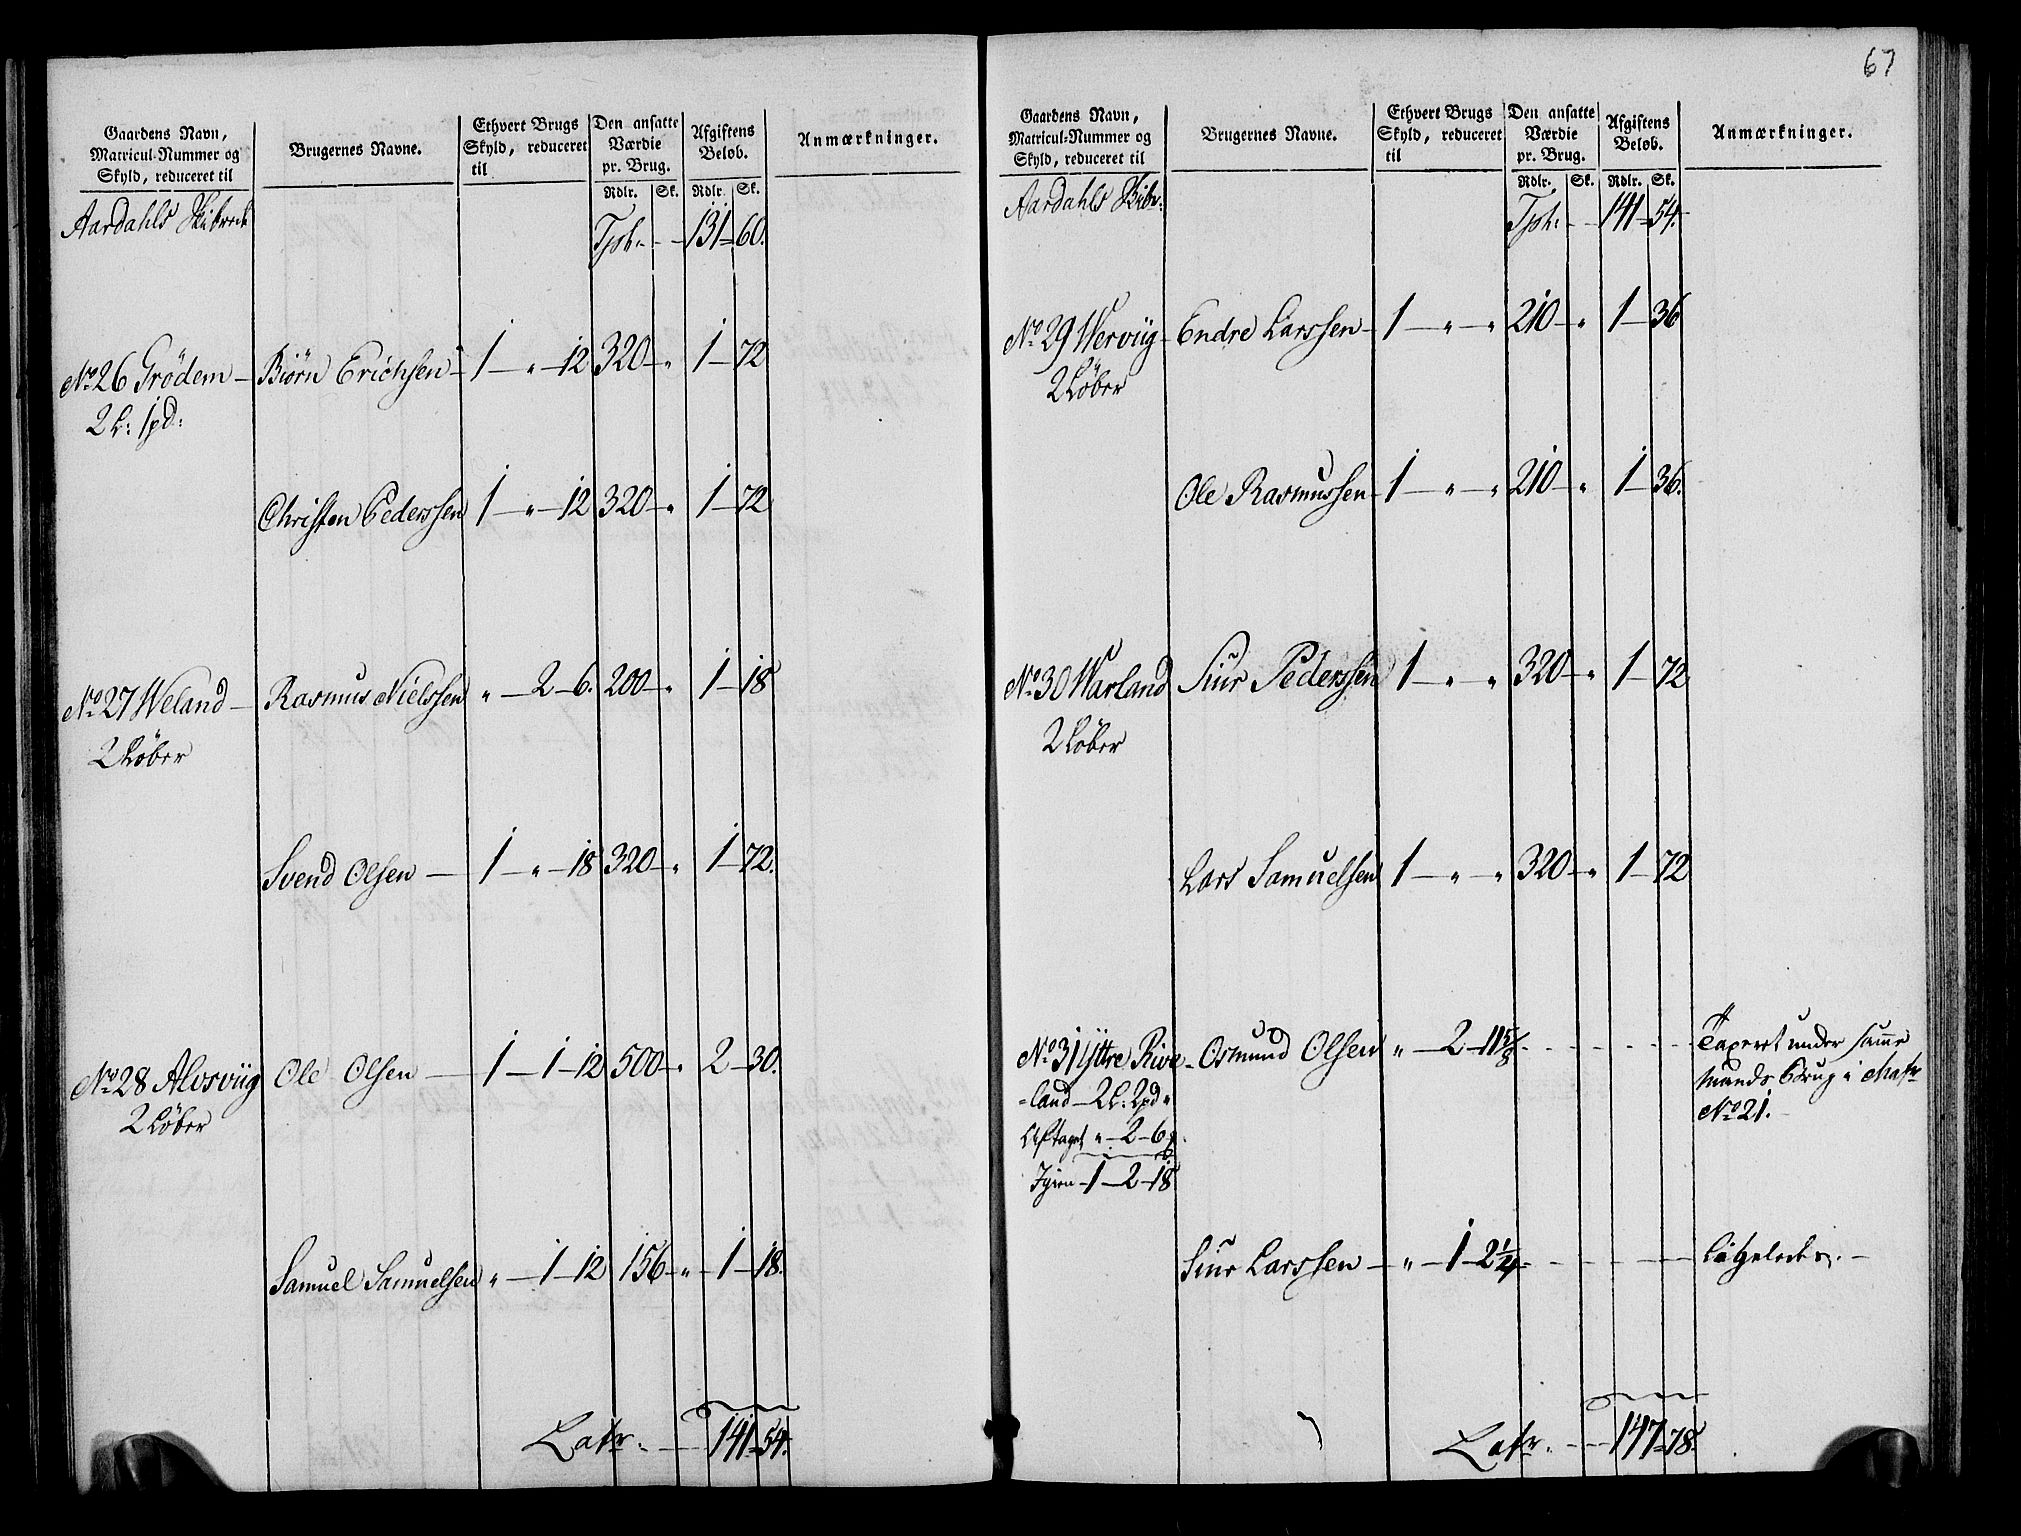 67
Gaardens Navn,
Matricul-Nummer og
Skyld, reduceret til
Brugernes Navne.
Ethvert Brugs
Skyld, reduceret
til
Den ansatte
Værdie
pr. Brug.
Rdlr. Sk.
Afgiftens
Beløb.
Rdlr. Sk.
Anmærkninger.
Aardahls Skibrede Tpt. 131 60.
No 26 Grödem Biörn Erichsen 1 " 12 320 " 1 72
2 L: 1 pd:
Christen Pederssen 1 " 12 320 " 1 72
No 27 Weland Rasmus Nielssen " 2 6. 200 " 1 18
2 Löber
Svend Olsen 1 " 18 320 " 1 72.
No 28 Alvsviig Ole Olsen 1 1 12 500 " 2 30.
2 Löber
Samuel Samuelsen " 1 12 156 " 1 18.
Latr. 141 54.
Gaardens Navn,
Matricul-Nummer og
Skyld, reduceret til
Brugernes Navne.
Ethvert Brugs
Skyld, reduceret
til
Den ansatte
Værdie
pr. Brug.
Rdlr. Sk.
Afgiftens
Beløb.
Rdlr. Sk.
Anmærkninger.
Aardahls Skibr: Tpt. 141 54.
No 29 Werviig Endre Larssen 1 " " 210 " 1 36
2 Löber
Ole Rasmussen 1 " " 210 " 1 36.
No 30 Warland Siur Pederssen 1 " " 320 " 1 72
2 Löber
Lars Samuelsen 1 " " 320 " 1 72
No 31 Yttre Rive- Osmund Olsen " 2 11 5/8 Taxeret under samme
-land 2 L: 2 pd " Mands Brug i Matr
Aftaget " 2 6 No 21.
Igien 1 2 18
Siur Larssen " 1 2 1/4 Ligeledes.
Latr. 147 78.